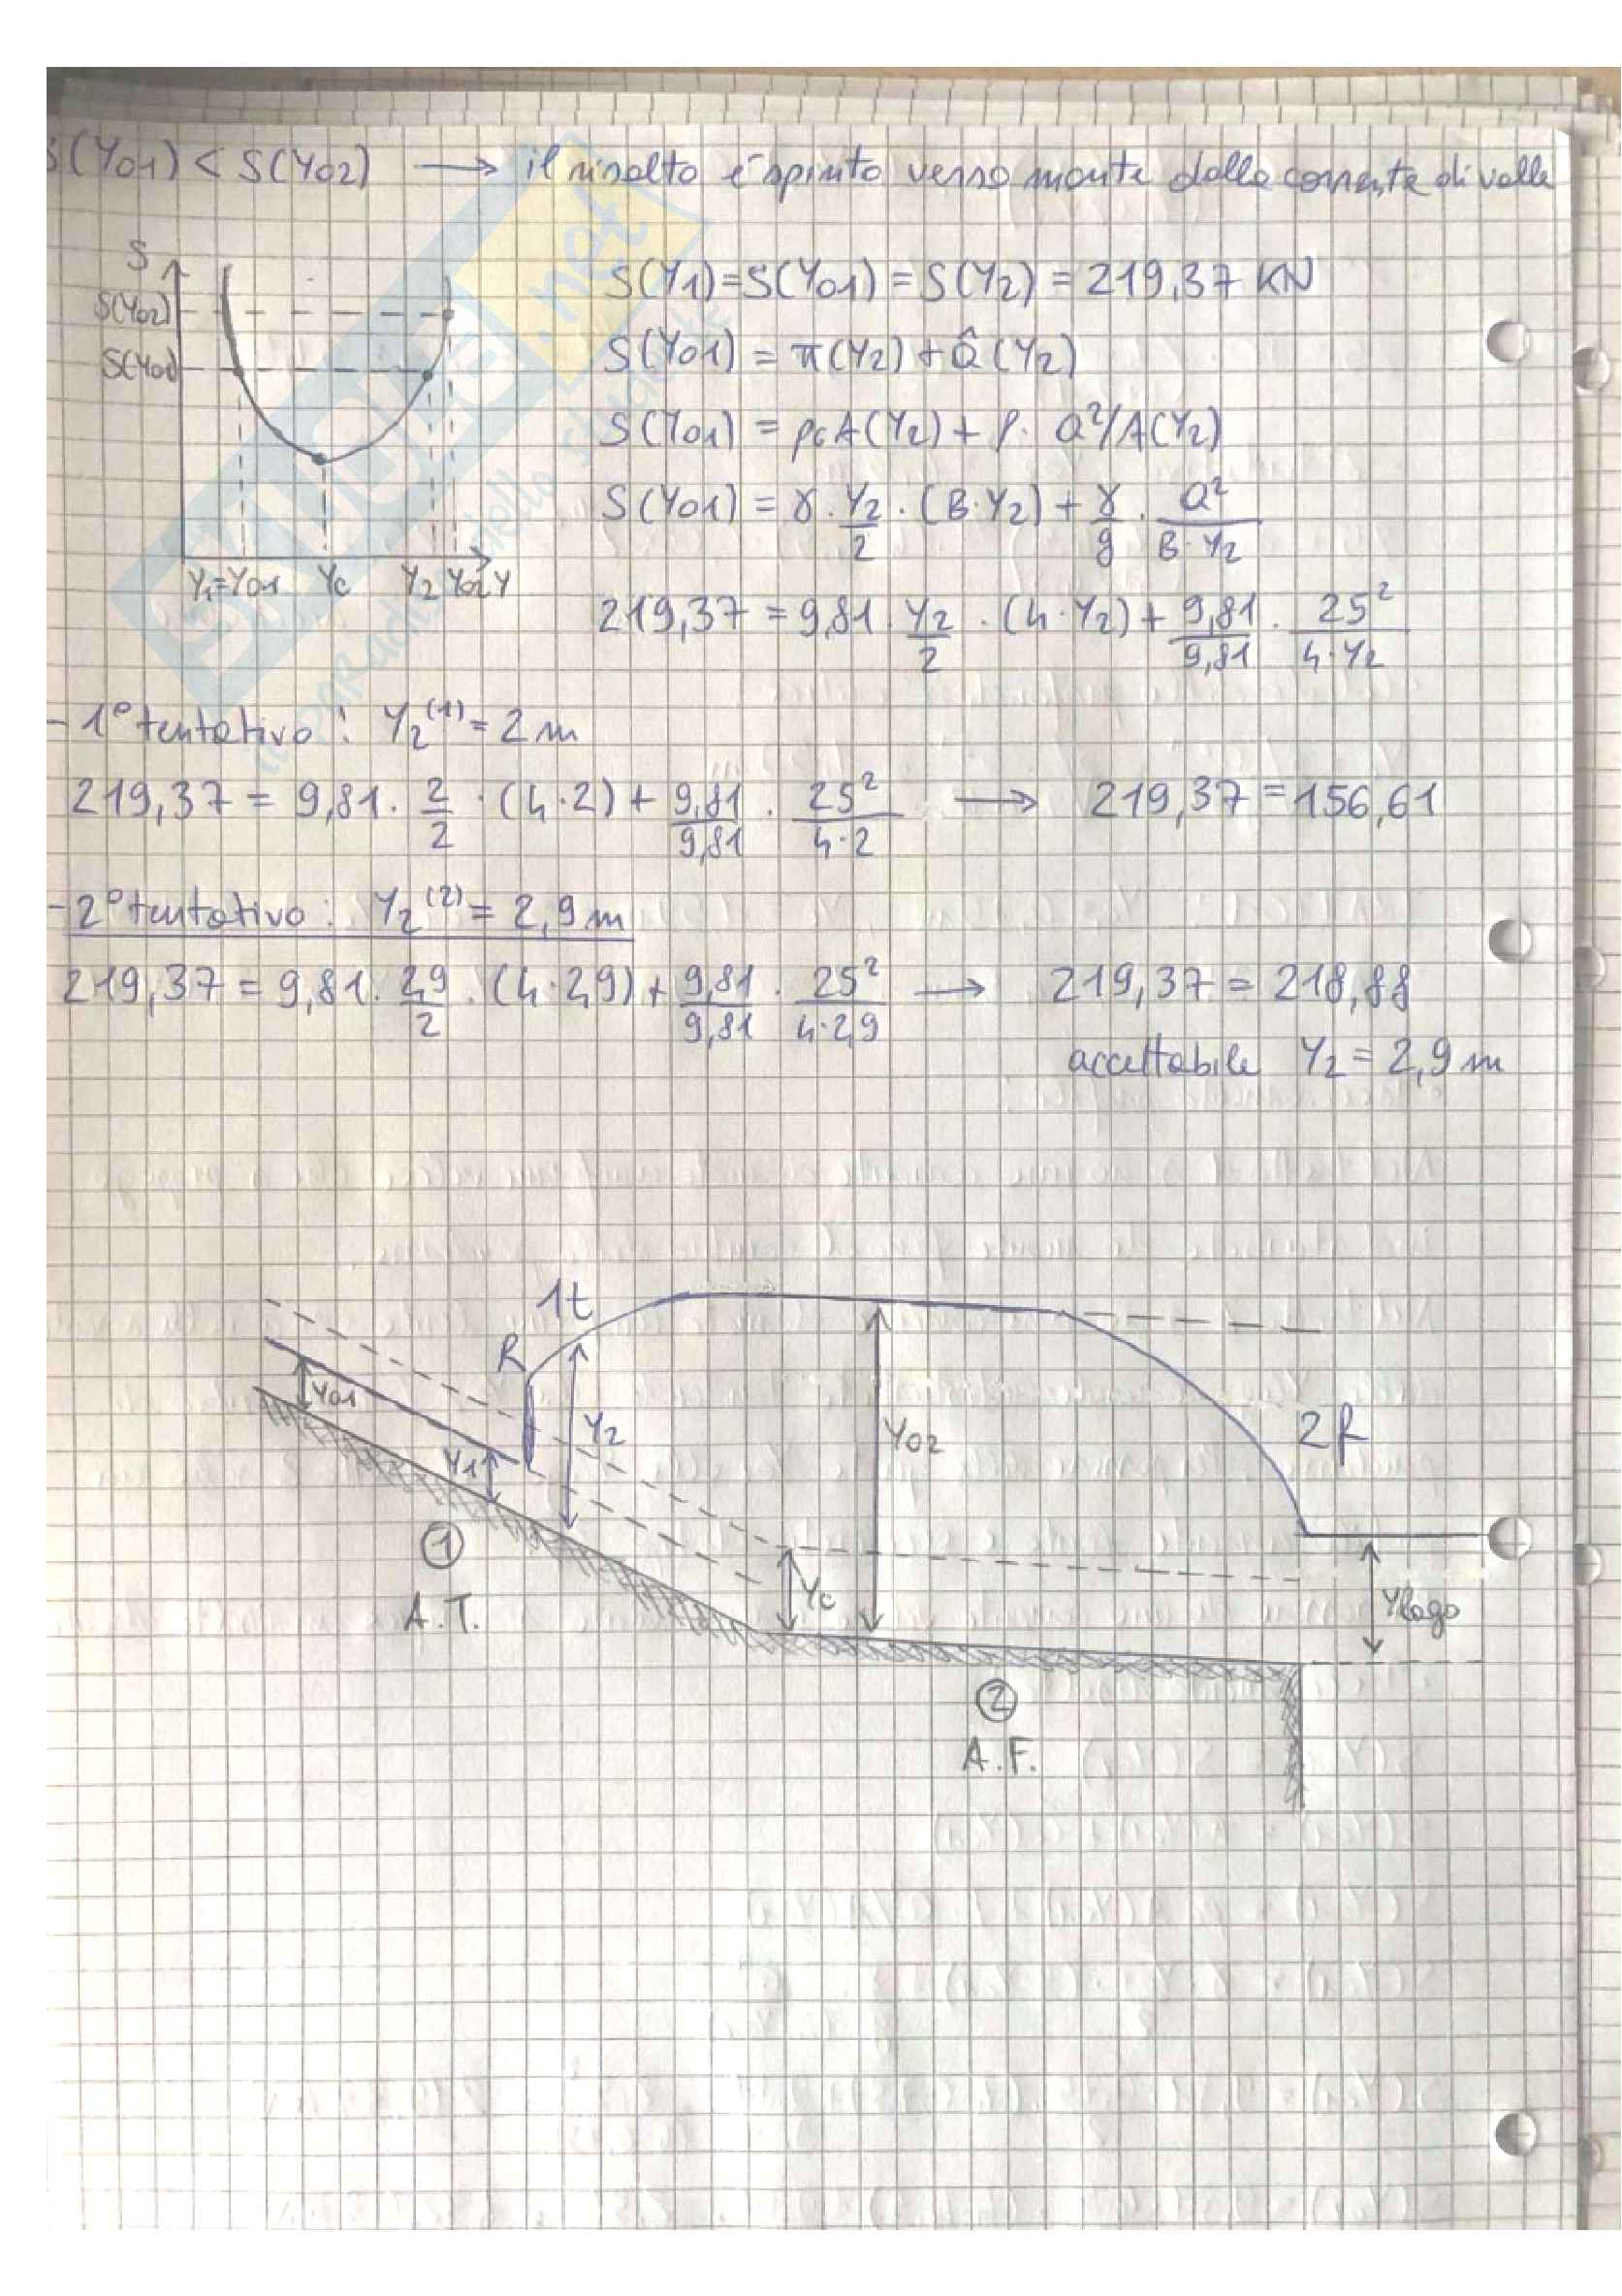 S(Y01) < S(Y02) → il risalto è spinto verso monte dalla corrente di valle
S
S(Y02)
S(Y01)
Y1=Y01 Yc Y2 Y02 Y
S(Y1)=S(Y01)=S(Y2)=219,37 KN
S(Y01) = π(Y2) + Q̂(Y2)
S(Y01) = pc A(Y2) + ρ · Q²/A(Y2)
S(Y01) = γ · Y2/2 · (B·Y2) + γ/g · Q²/(B·Y2)
219,37 = 9,81 · Y2/2 · (4·Y2) + 9,81/9,81 · 25²/(4·Y2)
- 1° tentativo: Y2⁽¹⁾ = 2 m
219,37 = 9,81 · 2/2 · (4·2) + 9,81/9,81 · 25²/(4·2) → 219,37 = 156,61
- 2° tentativo: Y2⁽²⁾ = 2,9 m
219,37 = 9,81 · 2,9/2 · (4·2,9) + 9,81/9,81 · 25²/(4·2,9) → 219,37 = 218,88
accettabile Y2 = 2,9 m
1t
R
Y01
Y1
Y2
Y02
2f
Yc
Ylago
1
A.T.
2
A.F.
SKUOLA.net